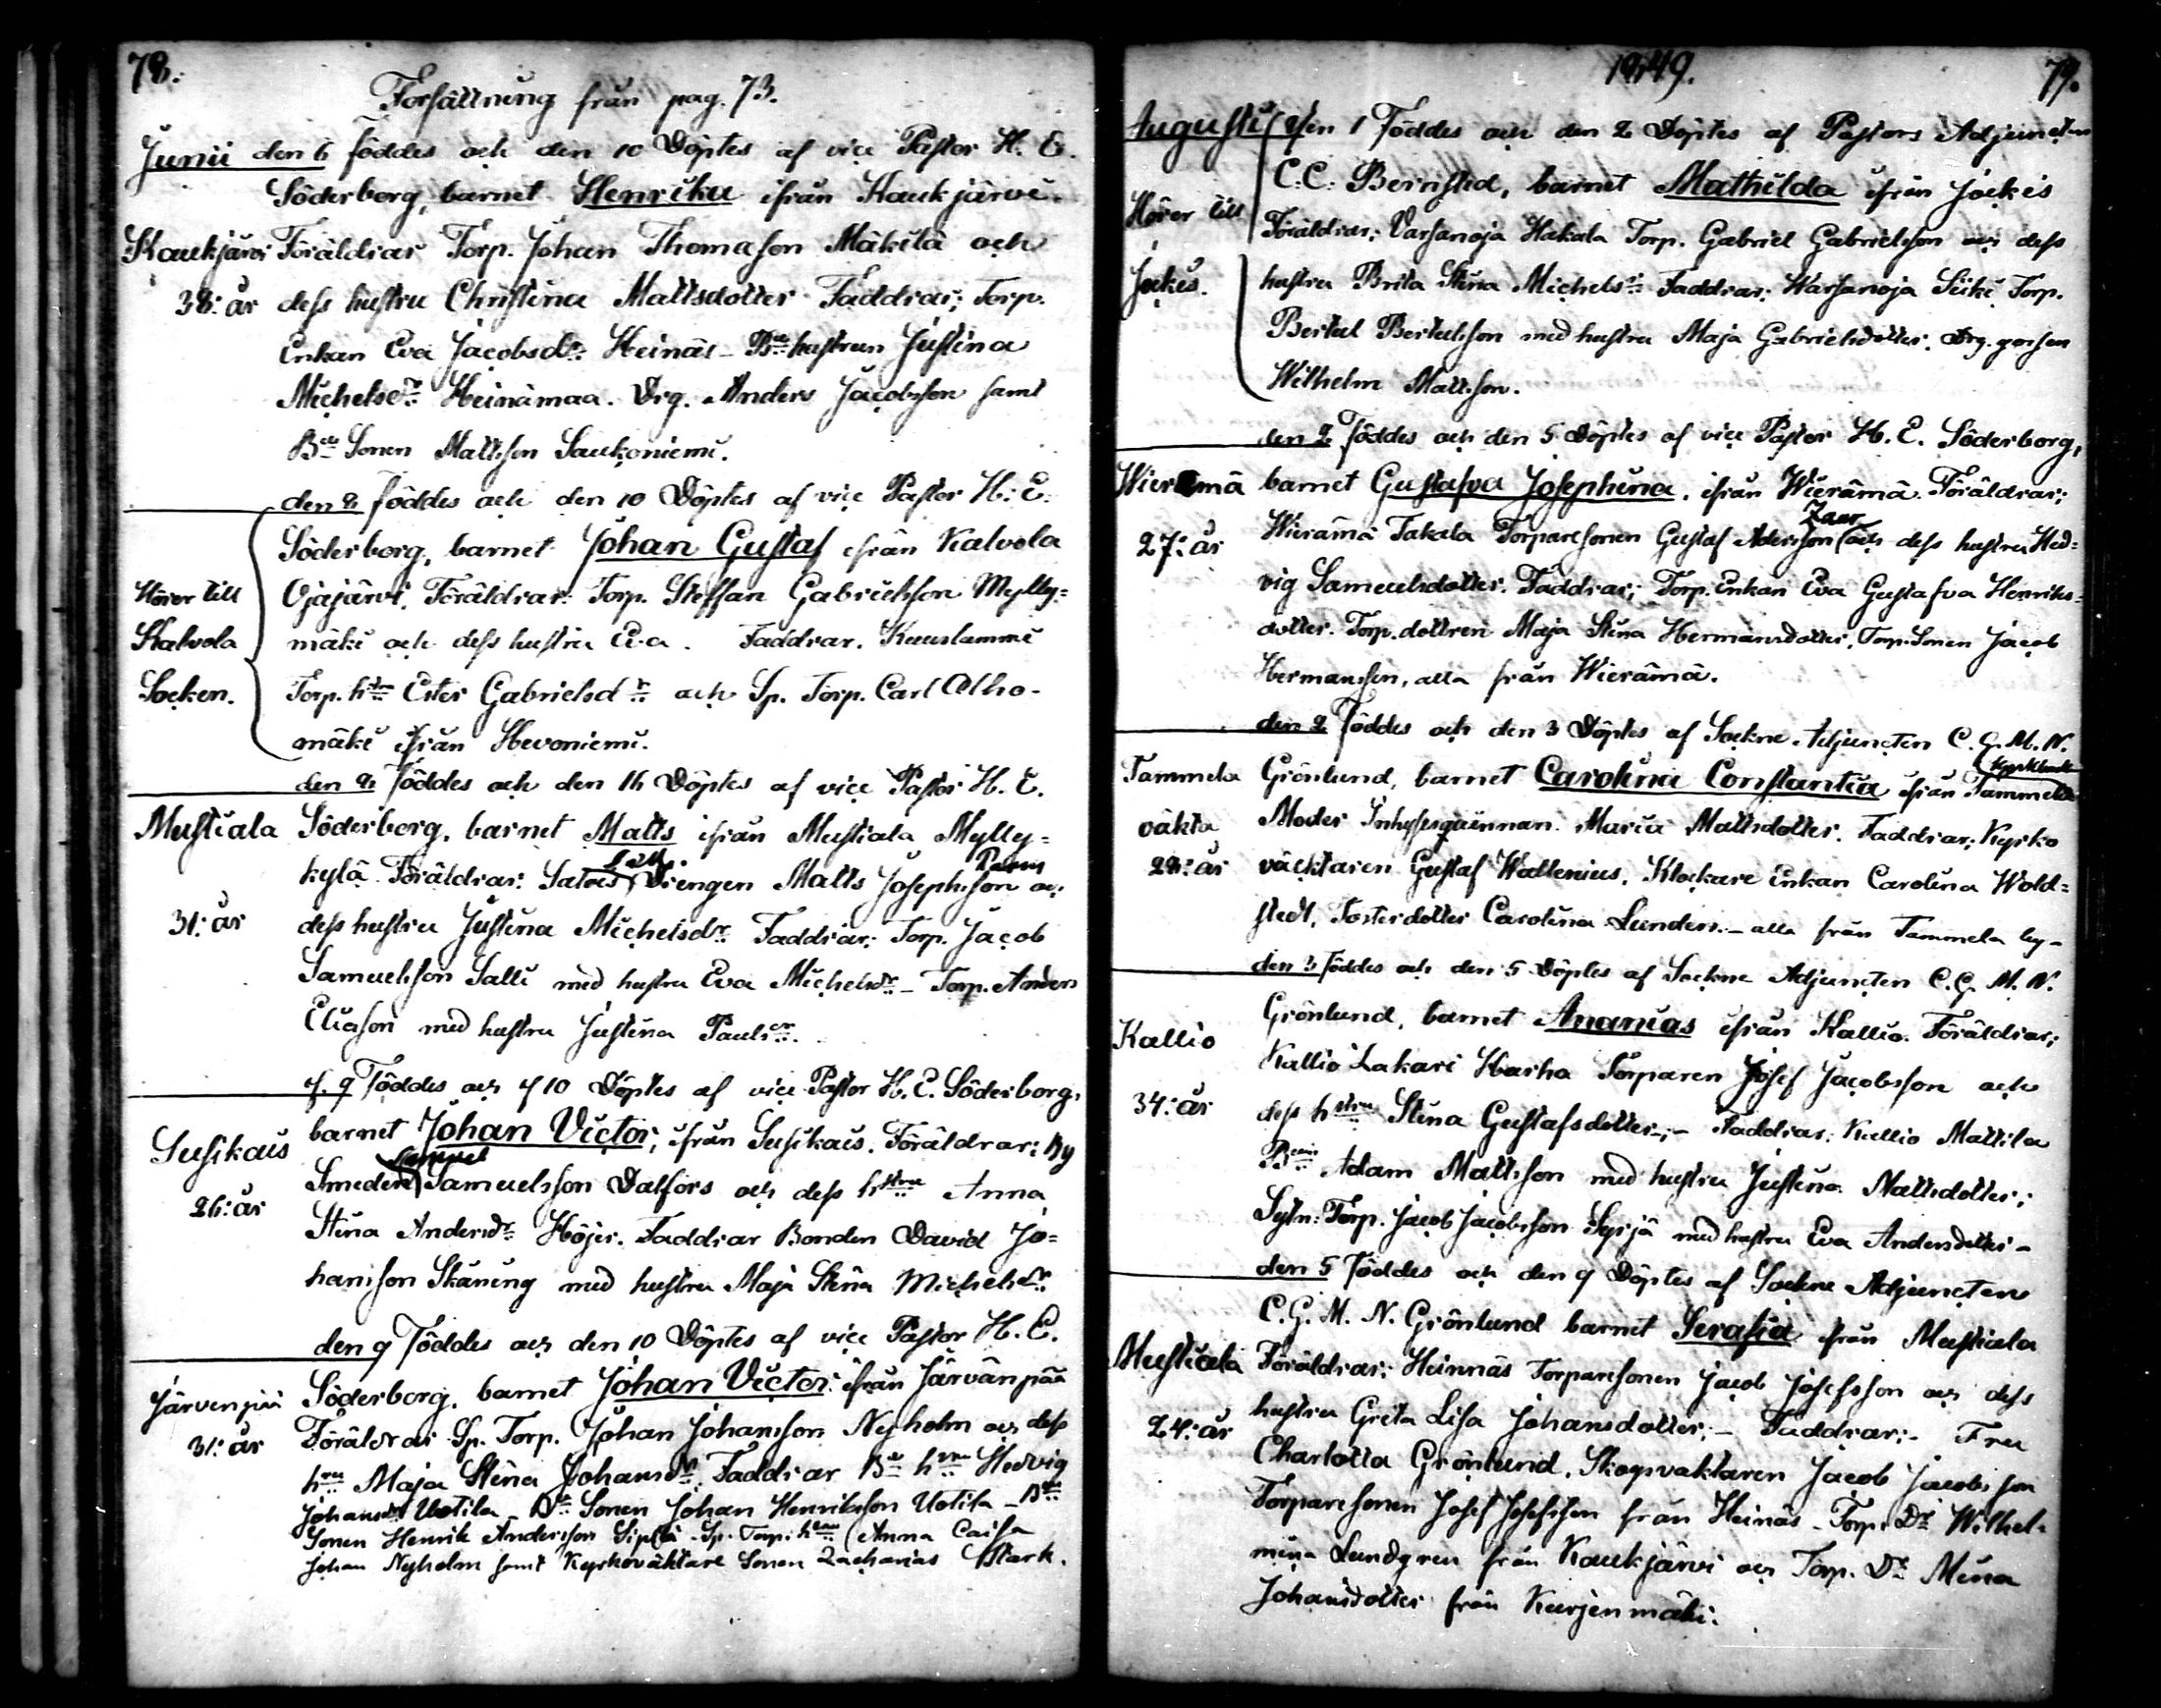 78.
Forsättning från pag. 73.
Junii den 6 föddes och den 10 Döptes af vice Pastor H. E.
Söderborg, barnet Henrika ifrån Kaukjärvi.
Kaukjärvi Föräldrar Torp. Johan Thomason Mäkilä och
38: år dess hustru Christina Mattsdotter Faddrar; Torp.
Enkan Eva Jacobsdr Heinäs - Bde hustrun Justina
Michelsdr Heinämaa. Drg. Anders Jacobsson samt
Bde Sonen Mattsson Saukoniemi.
den 8 föddes och den 10 Döptes af vice Pastor H. E.
Söderborg, barnet Johan Gustaf ifrån Kalvola
Hörer till Ojajärvi, Föräldrar: Torp. Steffan Gabrielsson Mylly=
Kalvola mäki och dess hustru Eva. Faddrar. Kuuslammi
Socken. Torp. htru Ester Gabrielsdr och Sp. Torp. Carl Alho-
mäki ifrån Hevoniemi.
den 8 föddes och den 16 Döptes af vice Pastor H. E.
Mustiala Söderborg, barnet Matts ifrån Mustiala Mylly=
kylä Föräldrar: Drengen Matts Josephsson och
31: år dess hustru Justina Michelsdr Faddrar: Torp. Jacob
Samuelsson Salli med hustru Eva Michelsdr - Torp. Anders
Eliason med hustru Justina Paulsdr.
d. 9 Föddes och d 10 Döptes af vice Pastor H. E. Söderborg,
barnet Johan Victor, ifrån Susikais. Föräldrar: By
Susikais Smeden Samuel Samuelsson Dalfors och dess hstru Anna
26: år Stina Andersdr Höjer. Faddrar Bonden David Jo=
hansson Skäning med hustru Maja Stina Michelsdr
den 9 Föddes och den 10 Döptes af vice Pastor H. E.
Järvenpää Söderborg, barnet Johan Victor ifrån Järvänpää
31: år Föräldrar Sp. Torp. Johan Johansson Nyholm och dess
hru Maja Stina Johansdr. Faddrar Bde hru Hedvig
Johansdr Uotila Bde Sonen Johan Henriksson Uotila - Bde
Sonen Henrik Andersson Sipilä - Sp. Torp. hru Anna Caisa
Johan Nyholm samt Kyrkoväktare Sonen Zacharias Stark.
1849. 79.
Augusti den 1 Föddes och den 2 Döptes af Pastors Adjuncten
C: C: Bernsted, barnet Mathilda ifrån Jockis
Hörer till Föräldrar: Varsanoja Hakala Torp. Gabriel Gabrielsson och dess
Jockis. hustru Brita Stina Michelsdr Faddrar: Warsanoja Torp.
Bertel Bertelsson med hustru Maja Gabrielsdotter. Drg. gossen
Wilhelm Mattsson.
den 2 Föddes och den 5 Döptes af vice Pastor H. E. Söderborg,
Wieremä barnet Gustafva Josephina, ifrån Wierämä. Föräldrar;
27: år Wierämä Takala Torparesonen Gustaf Adersson och dess hustru Hed=
vig Samuelsdotter. Faddrar; Torp. Enkan Eva Gustafva Henriks=
dotter. Torp. dottren Maja Stina Hermansdotter, Torp. Sonen Jacob
Hermansson, alla från Wierämä.
den 2 Föddes och den 3 Döptes af Sockne Adjuncten C. G. M. N.
Tammela Grönlund, barnet Carolina Constantia ifrån Tammela
väkta Moder Inhysesqvinnan Maria Mattsdotter. Faddrar: Kyrko
28: år väcktaren Gustaf Wallenius, Klockare Enkan Carolina Wold=
stedt, Fosterdotter Carolina Lunden. - alla från Tammela by -
den 3 Föddes och den 5 Döptes af Sockne Adjuncten C. G. M. N.
Grönlund, barnet Ananias ifrån Kallio. Föräldrar;
Kallio Kallio Lakari Harha Torparen Josef Jacobsson och
34: år dess hstru Stina Gustafsdotter; - Faddrar: Kallio Mattila
Adam Mattsson med hustru Justina Mattsdotter;
Sytn: Torp. Jacob Jacobsson Syrjä med hustru Eva Andersdotter -
den 5 Föddes och den 9 Döptes af Sockne Adjuncten
C. G. M. N. Grönlund barnet Serafia ifrån Mustiala
Mustiala Föräldrar: Heinnäs Torparesonen Jacob Josefsson och dess
24: år hustru Greta Lisa Johansdotter; - Faddrar: - Fru
Charlotta Grönlund, Skogsvaktaren Jacob Jacobsson
Torparesonen Josef Josefsson från Heinäs - Torp. Dr Wilhel-
mina Lundgren från Kaukjärvi och Torp. Dr Mina
Johansdotter från Kurjenmäki.